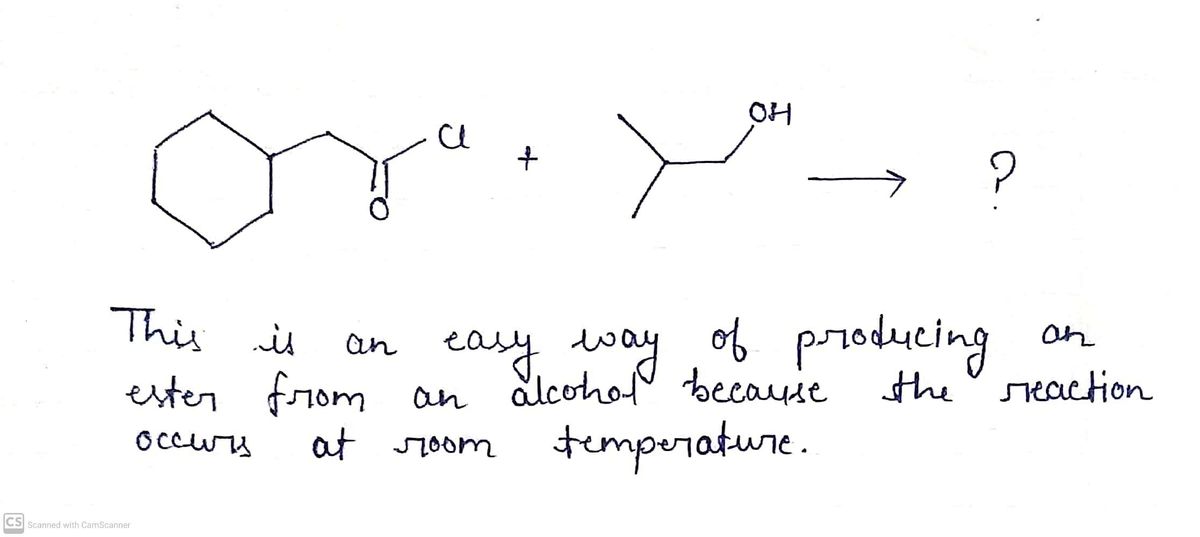 Cl
OH
+
?
O
This is an easy way of producing an
ester from an alcohol because the reaction
occurs at room temperature.
CS Scanned with CamScanner